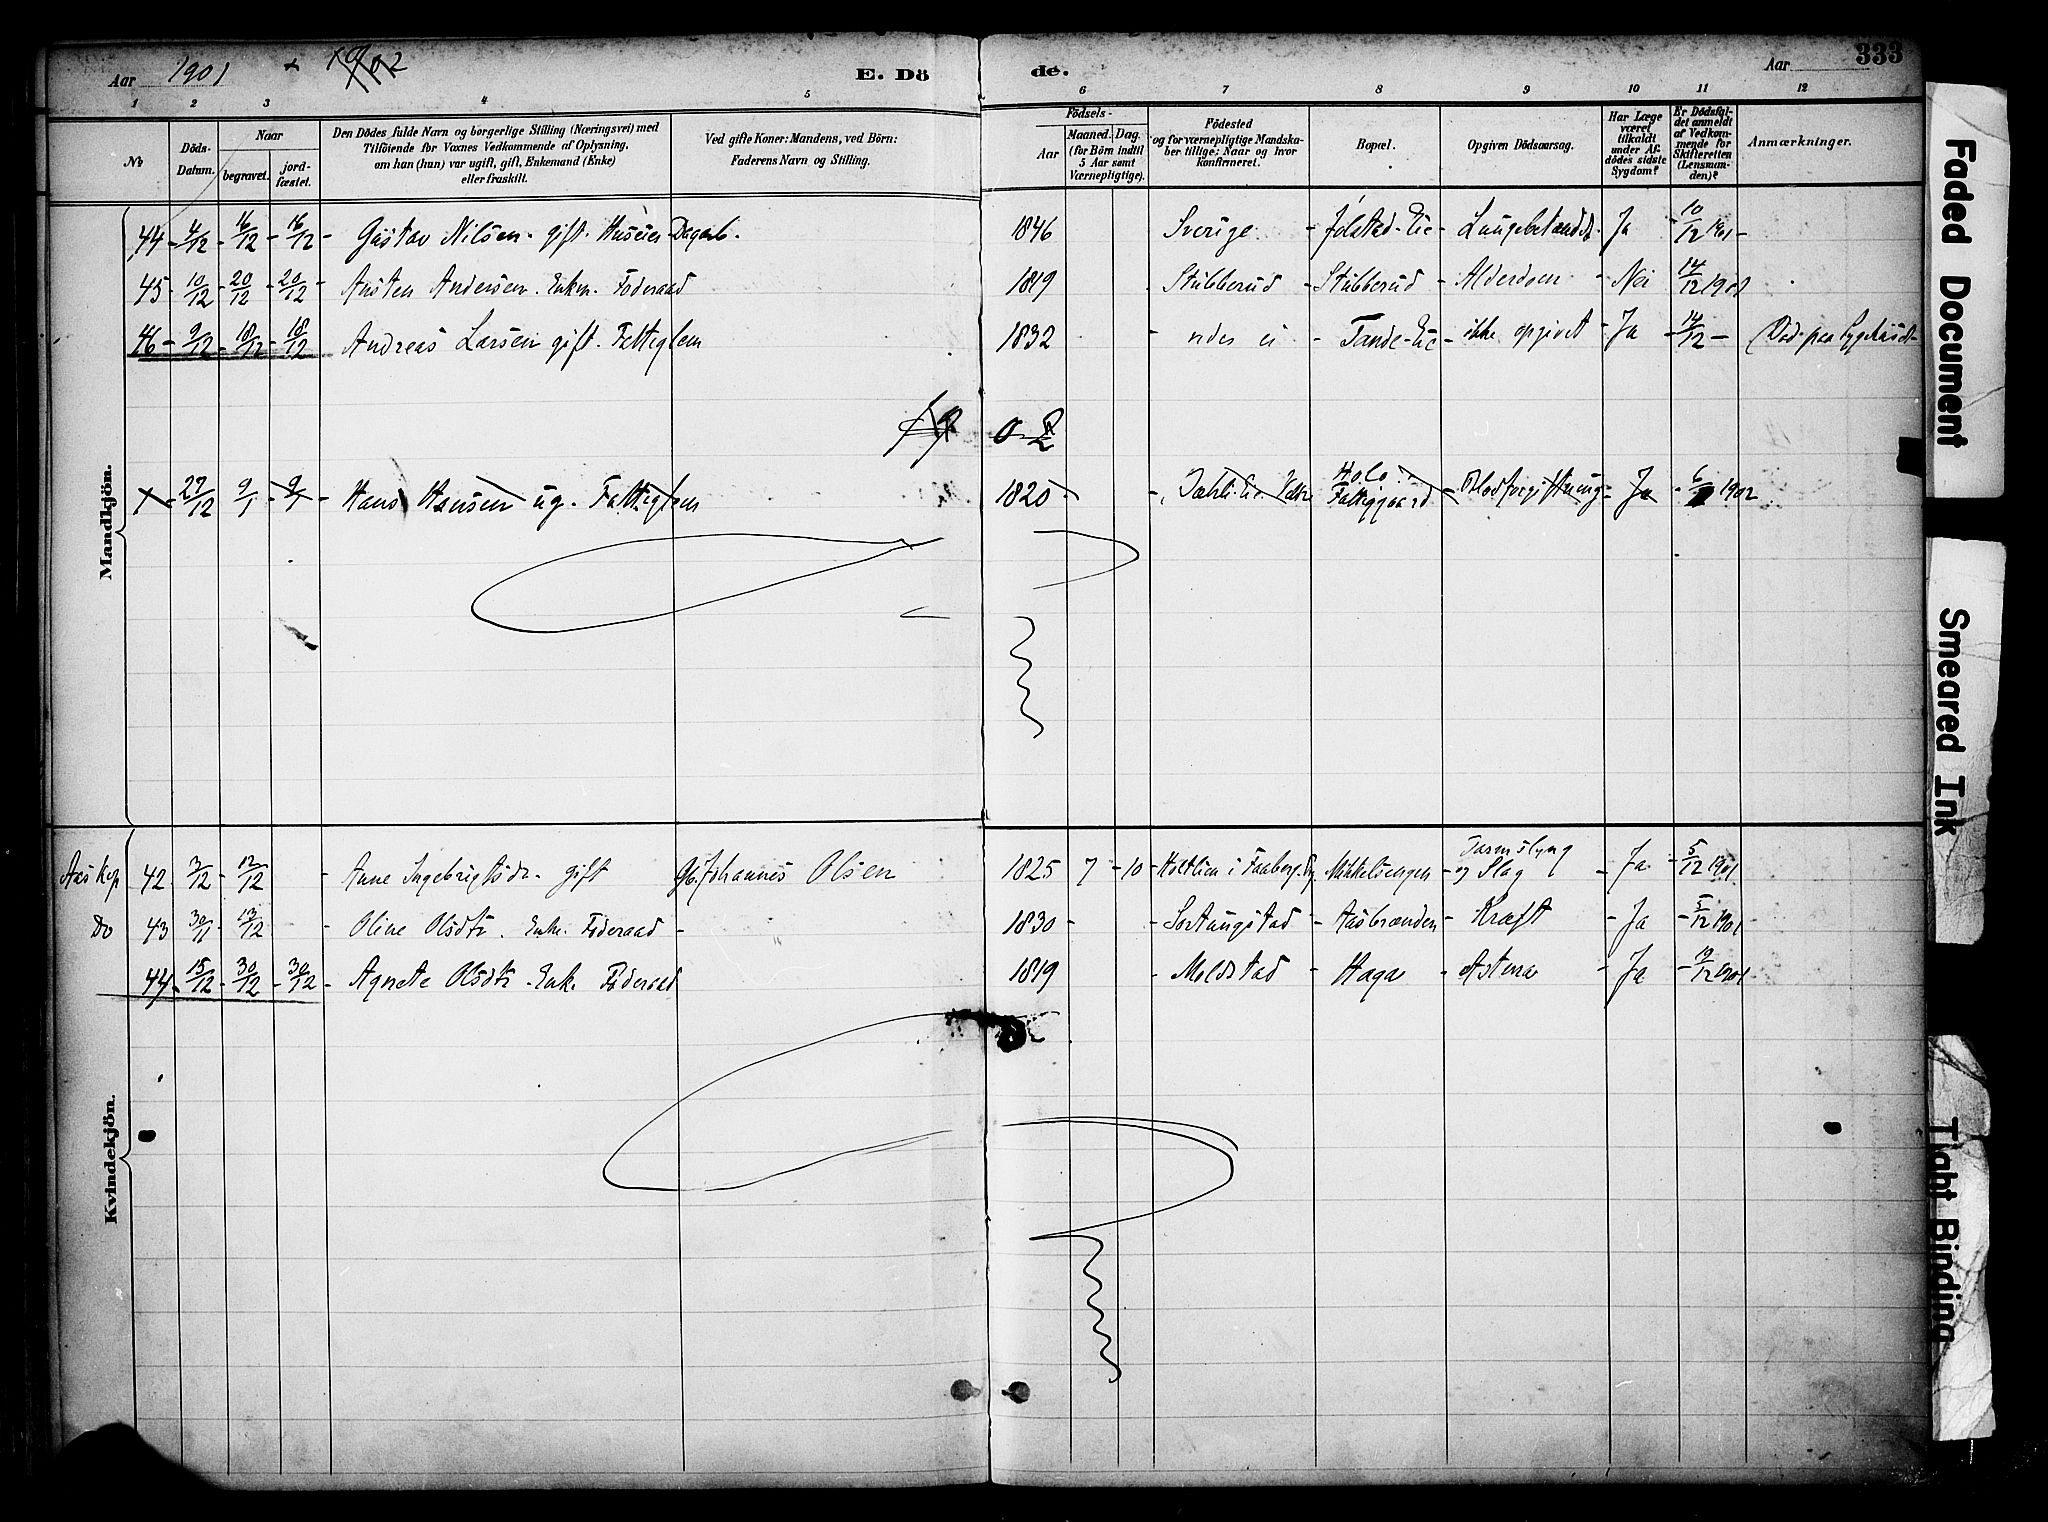 Aar 1901 + 1902 E. Döde. Aar 333
1 2 3 4 5 6 7 8 9 10 11 12
No
Döds-Datum.
Naar
begravet.
jordfæstet.
Den Dödes fulde Navn og borgerlige Stilling (Næringsvei) med
Tilföiende for Voxnes Vedkommende af Oplysning,
om han (hun) var ugift, gift, Enkemand (Enke)
eller fraskilt.
Ved gifte Koner: Mandens, ved Börn:
Faderens Navn og Stilling.
Födsels-
Aar
Maaned. Dag.
(for Börn indtil
5 Aar samt
Værnepligtige).
Födested
og for værnepligtige Mandska-
ber tillige: Naar og hvor
konfirmeret.
Bopæl.
Opgiven Dödsaarsag.
Har Læge
været
tilkaldt
under Af-
dödes sidste
Sygdom?
Er Dödsfal-
det anmeldt
af Vedkom-
mende for
Skifteretten
(Lensman-
den)?
Anmærkninger.
Mandkjön.
44 - 4/12 - 16/12 - 16/12 - Gustav Nilsen - gift. Huseier Dagarb. 1846 Sverige - Jølstad-Eie - Lungebetændelse Ja - 10/12 1901 -
45 - 10/12 - 20/12 - 20/12 - Austen Andersen. Enkm. Föderaad 1819 Stubberud - Stubberud - Alderdom - Nei 14/12 1901
46 - 9/12 - 18/12 - 18/12 Andreas Larsen gift. Fattiglem 1832 - vides ei - Tande-Eie - ikke opgivet - Ja - 14/12 - Död paa Sygehuset
02
27/12 9/1 9/1 - Hans Hansen ug. Fattiglem 1820 - Fattiggaard - Blodforgiftning - Ja - 6/1 1902
Kvindekjön.
42 3/12 - 12/12 - Anne Ingebrigtsdr. gift Gb. Johannes Olsen 1825 7 - 10 - i Faaberg Mikkelsengen - og Slag - Ja - 5/12 1901
Do 43 30/11 13/12 - Oline Olsdtr. Enke. Föderaad - 1830 - Sørtungstad - Aasbrænden - Kræft - Ja - 5/12 1901
44 - 15/12 - 30/12 - 30/12 - Agnete Olsdtr - Enke Föderaad 1819 - Moldstad - Haga - Astma - Ja - 19/12 1901
Faded Document
Smeared Ink
Tight Binding